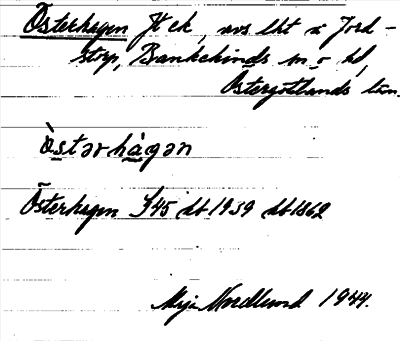 Österhagen Jt ck, avs lht i Jord-
storp, Bankekinds sn o hd,
Östergötlands län.
òstərhàgən
Österhagen S45 db 1939 db 1862
Nordlund 1944.